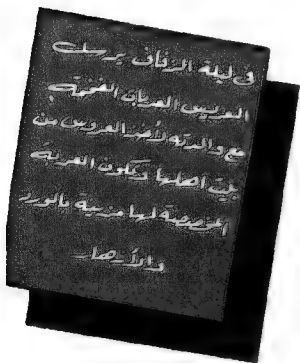 فى ليلة الزفاف يرسل
العريس العربات الفخمة
مع والدته لأخذ العروس من
بيت أهلها وتكون العربة
المخصصة لها مزينة بالورد
والأزهار